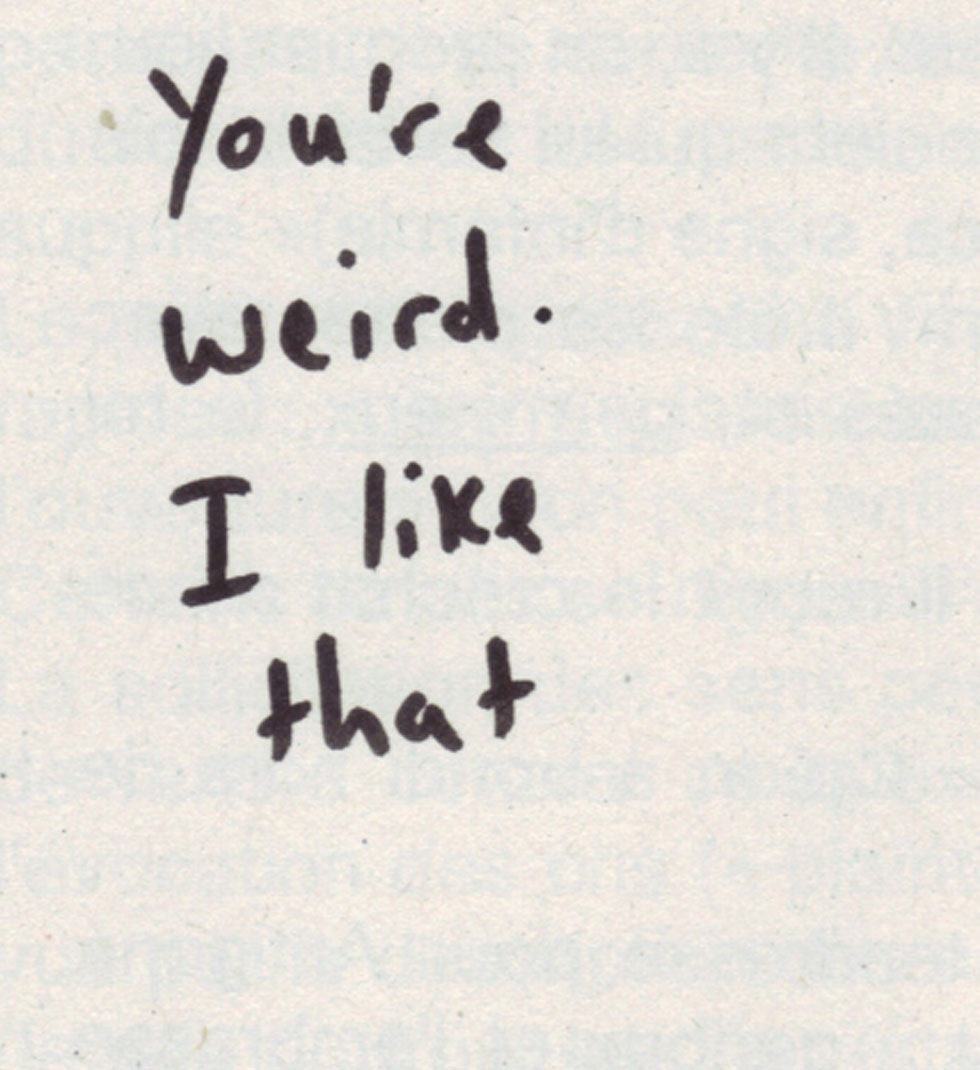 You're
weird.
I like
that